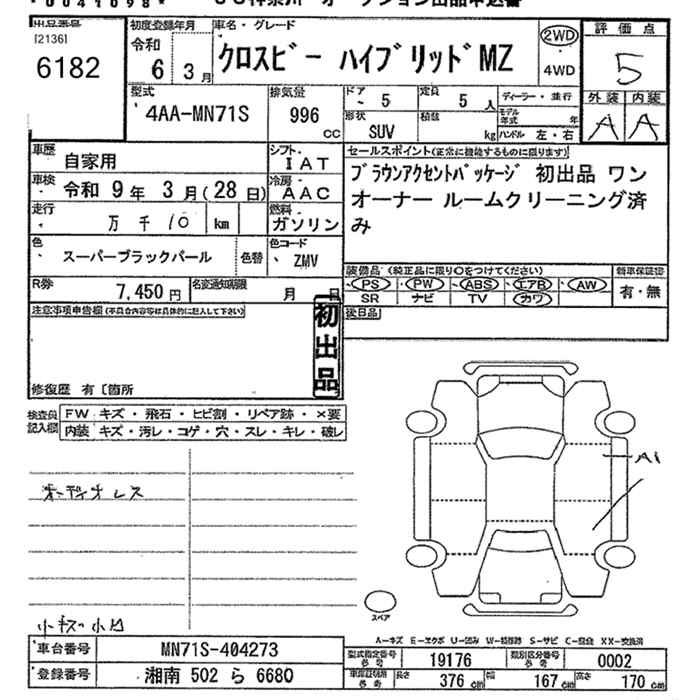 出品番号
[2136]
6182
初度登録年月
令和
6 年 3 月
車名・グレード
クロスビー ハイブリッドMZ
2WD
・
4WD
評価点
5
外装 内装
A A
型式
4AA-MN71S
排気量
996
CC
ドア
5
定員
5 人
形状
SUV
積載
kg
ディーラー・並行
モデル年式 年
ハンドル 左・右
車歴
自家用
シフト
IAT
車検
令和 9 年 3 月(28 日)
冷房
AAC
走行
万 千 10 km
燃料
ガソリン
色
スーパーブラックパール
色替
色コード
ZMV
R券
7,450 円
名変通知期限
月 日
セールスポイント(正常に機能するものに限ります)
ブラウンアクセントパッケージ 初出品 ワン
オーナー ルームクリーニング済
み
装備品(純正品に限り○をつけてください)
・PS ・PW ・ABS ・エアB ・AW
SR ナビ TV カワ
新車保証書
有・無
後日品
注意事項申告欄(不具合内容等は具体的に記入して下さい)
初出品
修復歴 有〔箇所
検査員
記入欄
FW キズ・飛石・ヒビ割・リペア跡・×要
内装 キズ・汚レ・コゲ・穴・スレ・キレ・破レ
オーディオレス
小キズ小凹
A1
スペア
車台番号
MN71S-404273
登録番号
湘南 502 ら 6680
型式指定番号
参考
19176
類別区分番号
参考
0002
長さ 376 cm
幅 167 cm
高さ 170 cm